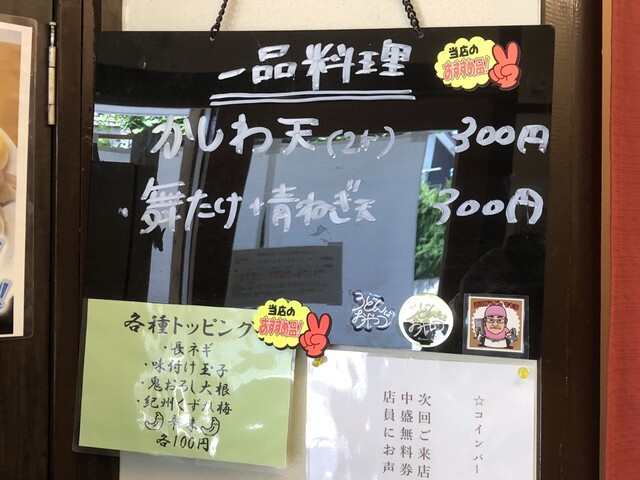 一品料理
当店の
おすすめ品!
かしわ天(2ヶ) 300円
・舞たけ+青ねぎ天 300円
各種トッピング
当店の
おすすめ品!
・長ネギ
・味付け玉子
・鬼おろし大根
・紀州くずれ梅
辛味
各100円
☆コインパー
次回ご来店
中盛無料券
店員にお声